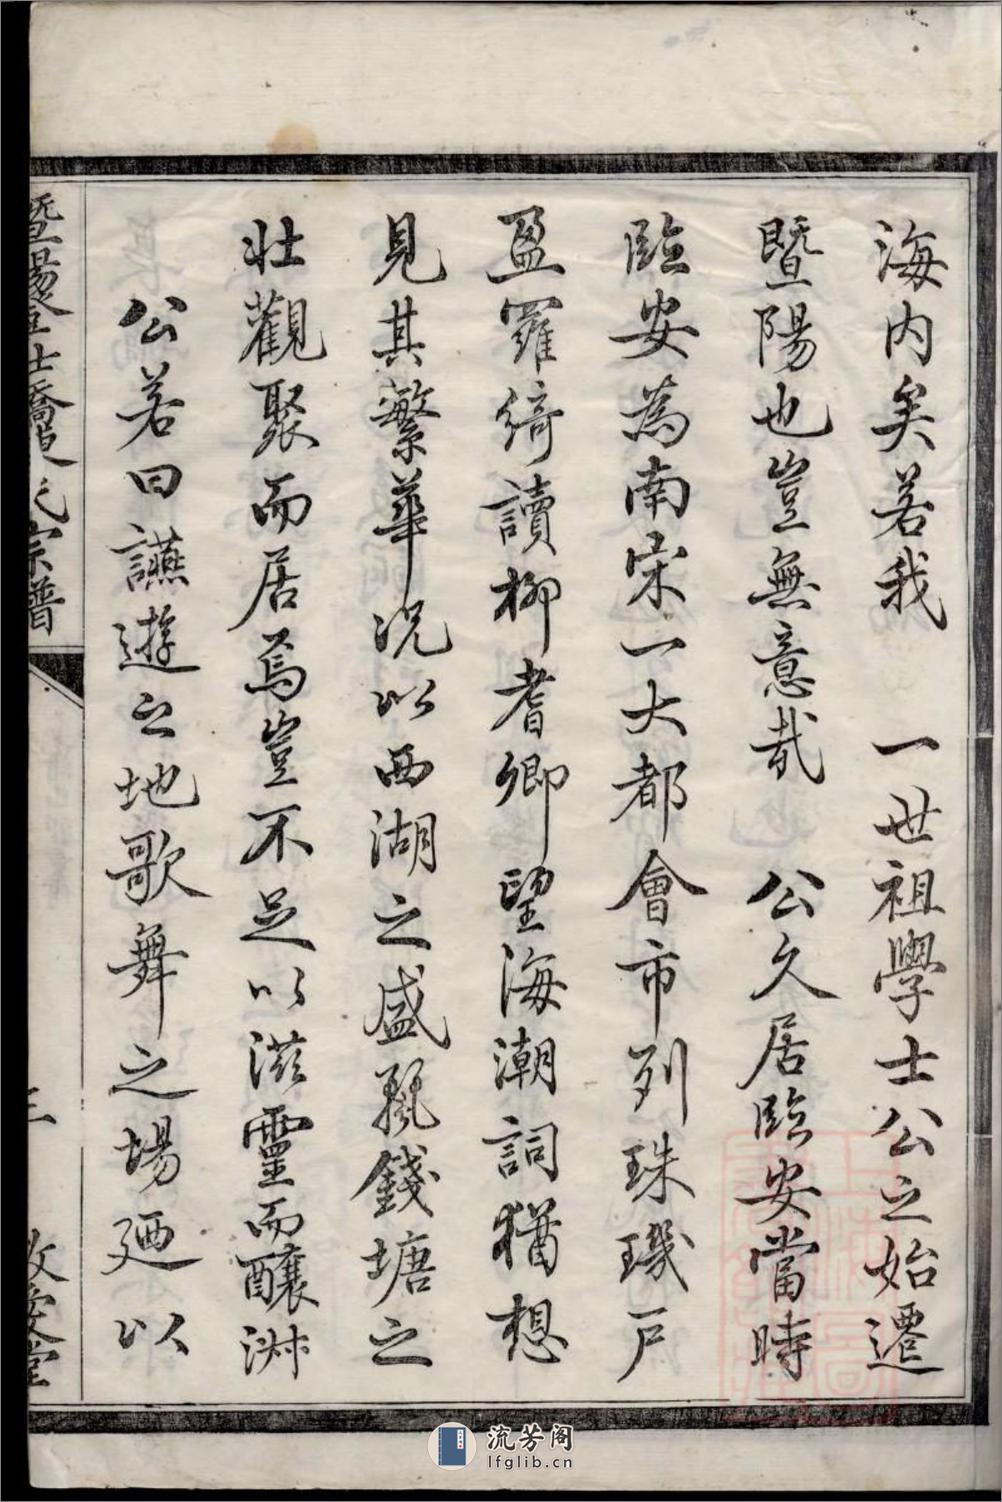 海内矣若我　一世祖學士公之始遷
暨陽也豈無意哉　公久居臨安當時
臨安為南宋一大都會市列珠璣戶
盈羅綺讀柳耆卿望海潮詞猶想
見其繁華況以西湖之盛甄錢塘之
壯觀聚而居焉豈不足以滋靈而釀淋
公若曰讌遊之地歌舞之場廼以
暨陽學士喬邊氏宗譜
三
敦愛堂
流芳阁
lfglib.cn